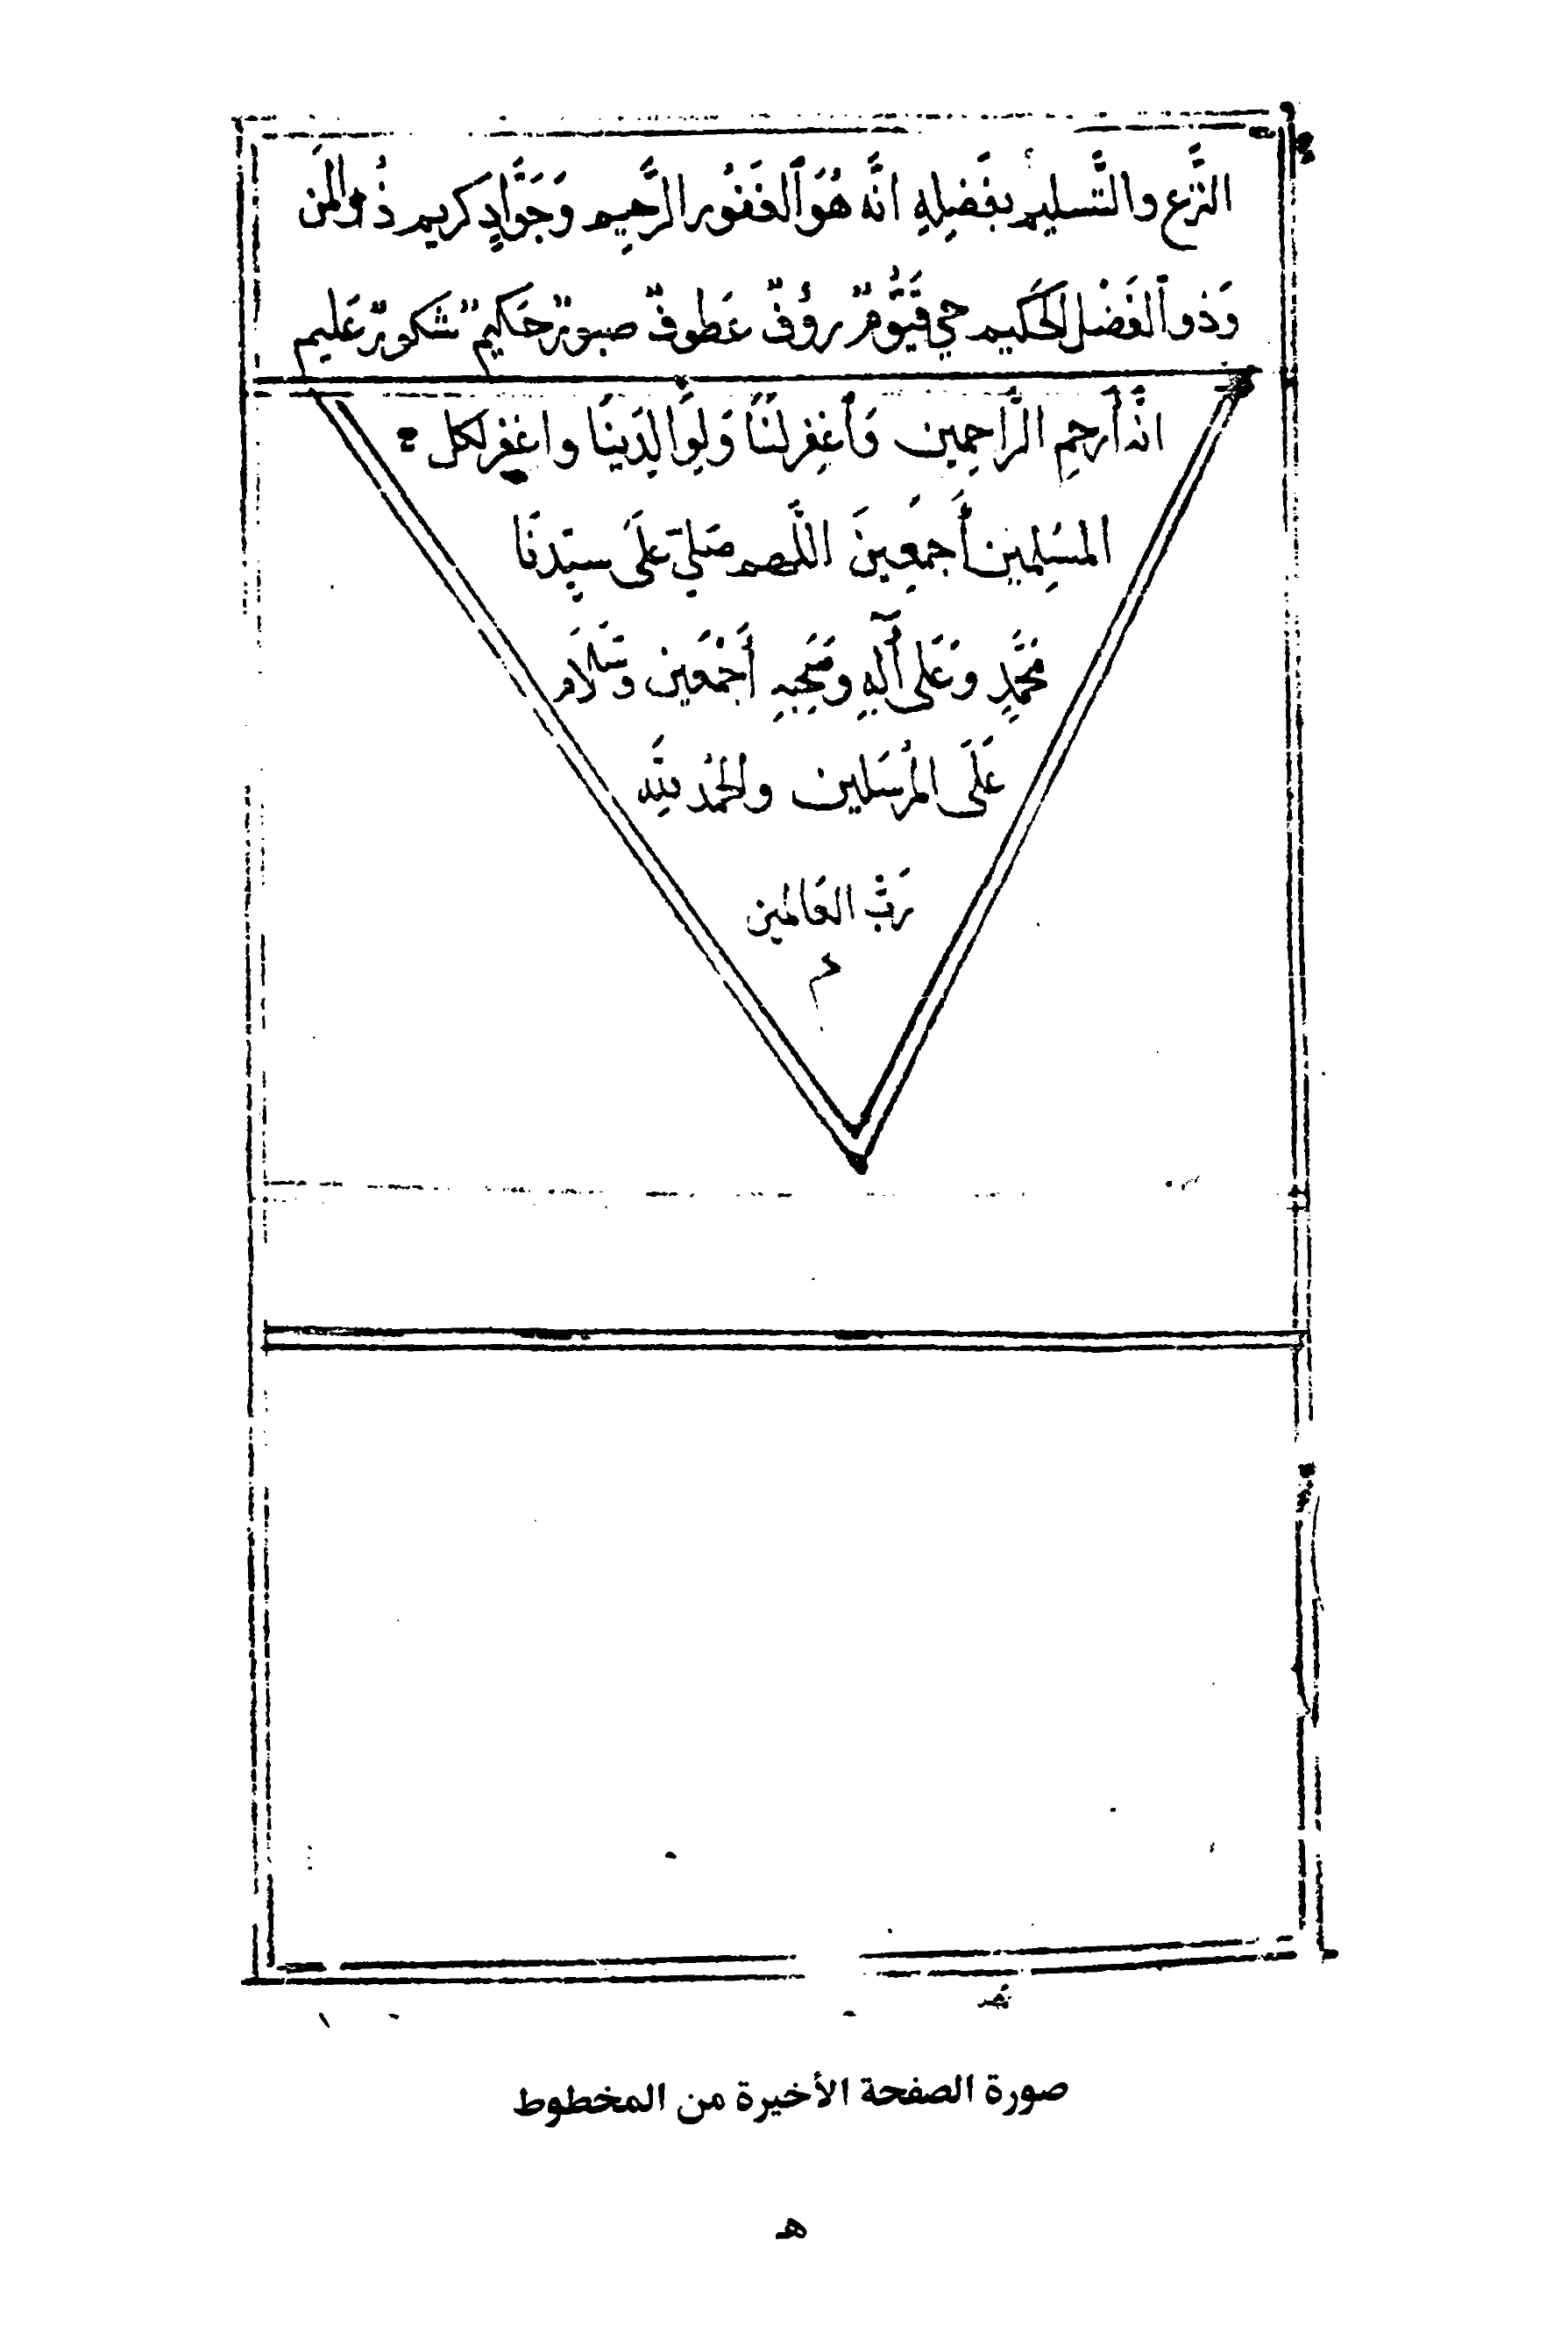 النَّزع والتَّسليم بفَضلِهِ انَّه هُوَ الغَفُور الرَّحِيم وَجَوَّادٍ كريم ذُو المَن
وَذو الفَضْل الحَكيم حي قَيُّومٌ رؤُفٌ عَطوفٌ صبورٌ حَكيمٌ شكورٌ عَليم
انَّه أرحِم الرَّاحِمين وَأغفِر لنَا وَلِوَالِدَينَا واغفِر لكل
المسُلِمين أجمَعِينَ اللّهم صَلي علَى سيِّدنَا
مَحَمَّدٍ وَعَلى آلِهِ وصَحِبهِ أَجْمَعين وسَلَام
عَلَى المُرسَلين والحَمْد للَّهِ
رَبّ العَالمين
م
صورة الصفحة الأخيرة من المخطوط
هـ